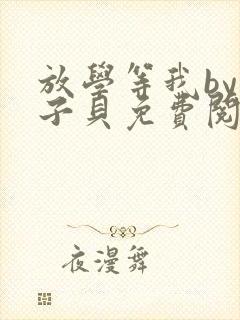 放學等我by
子貝免費閱
夜漫舞